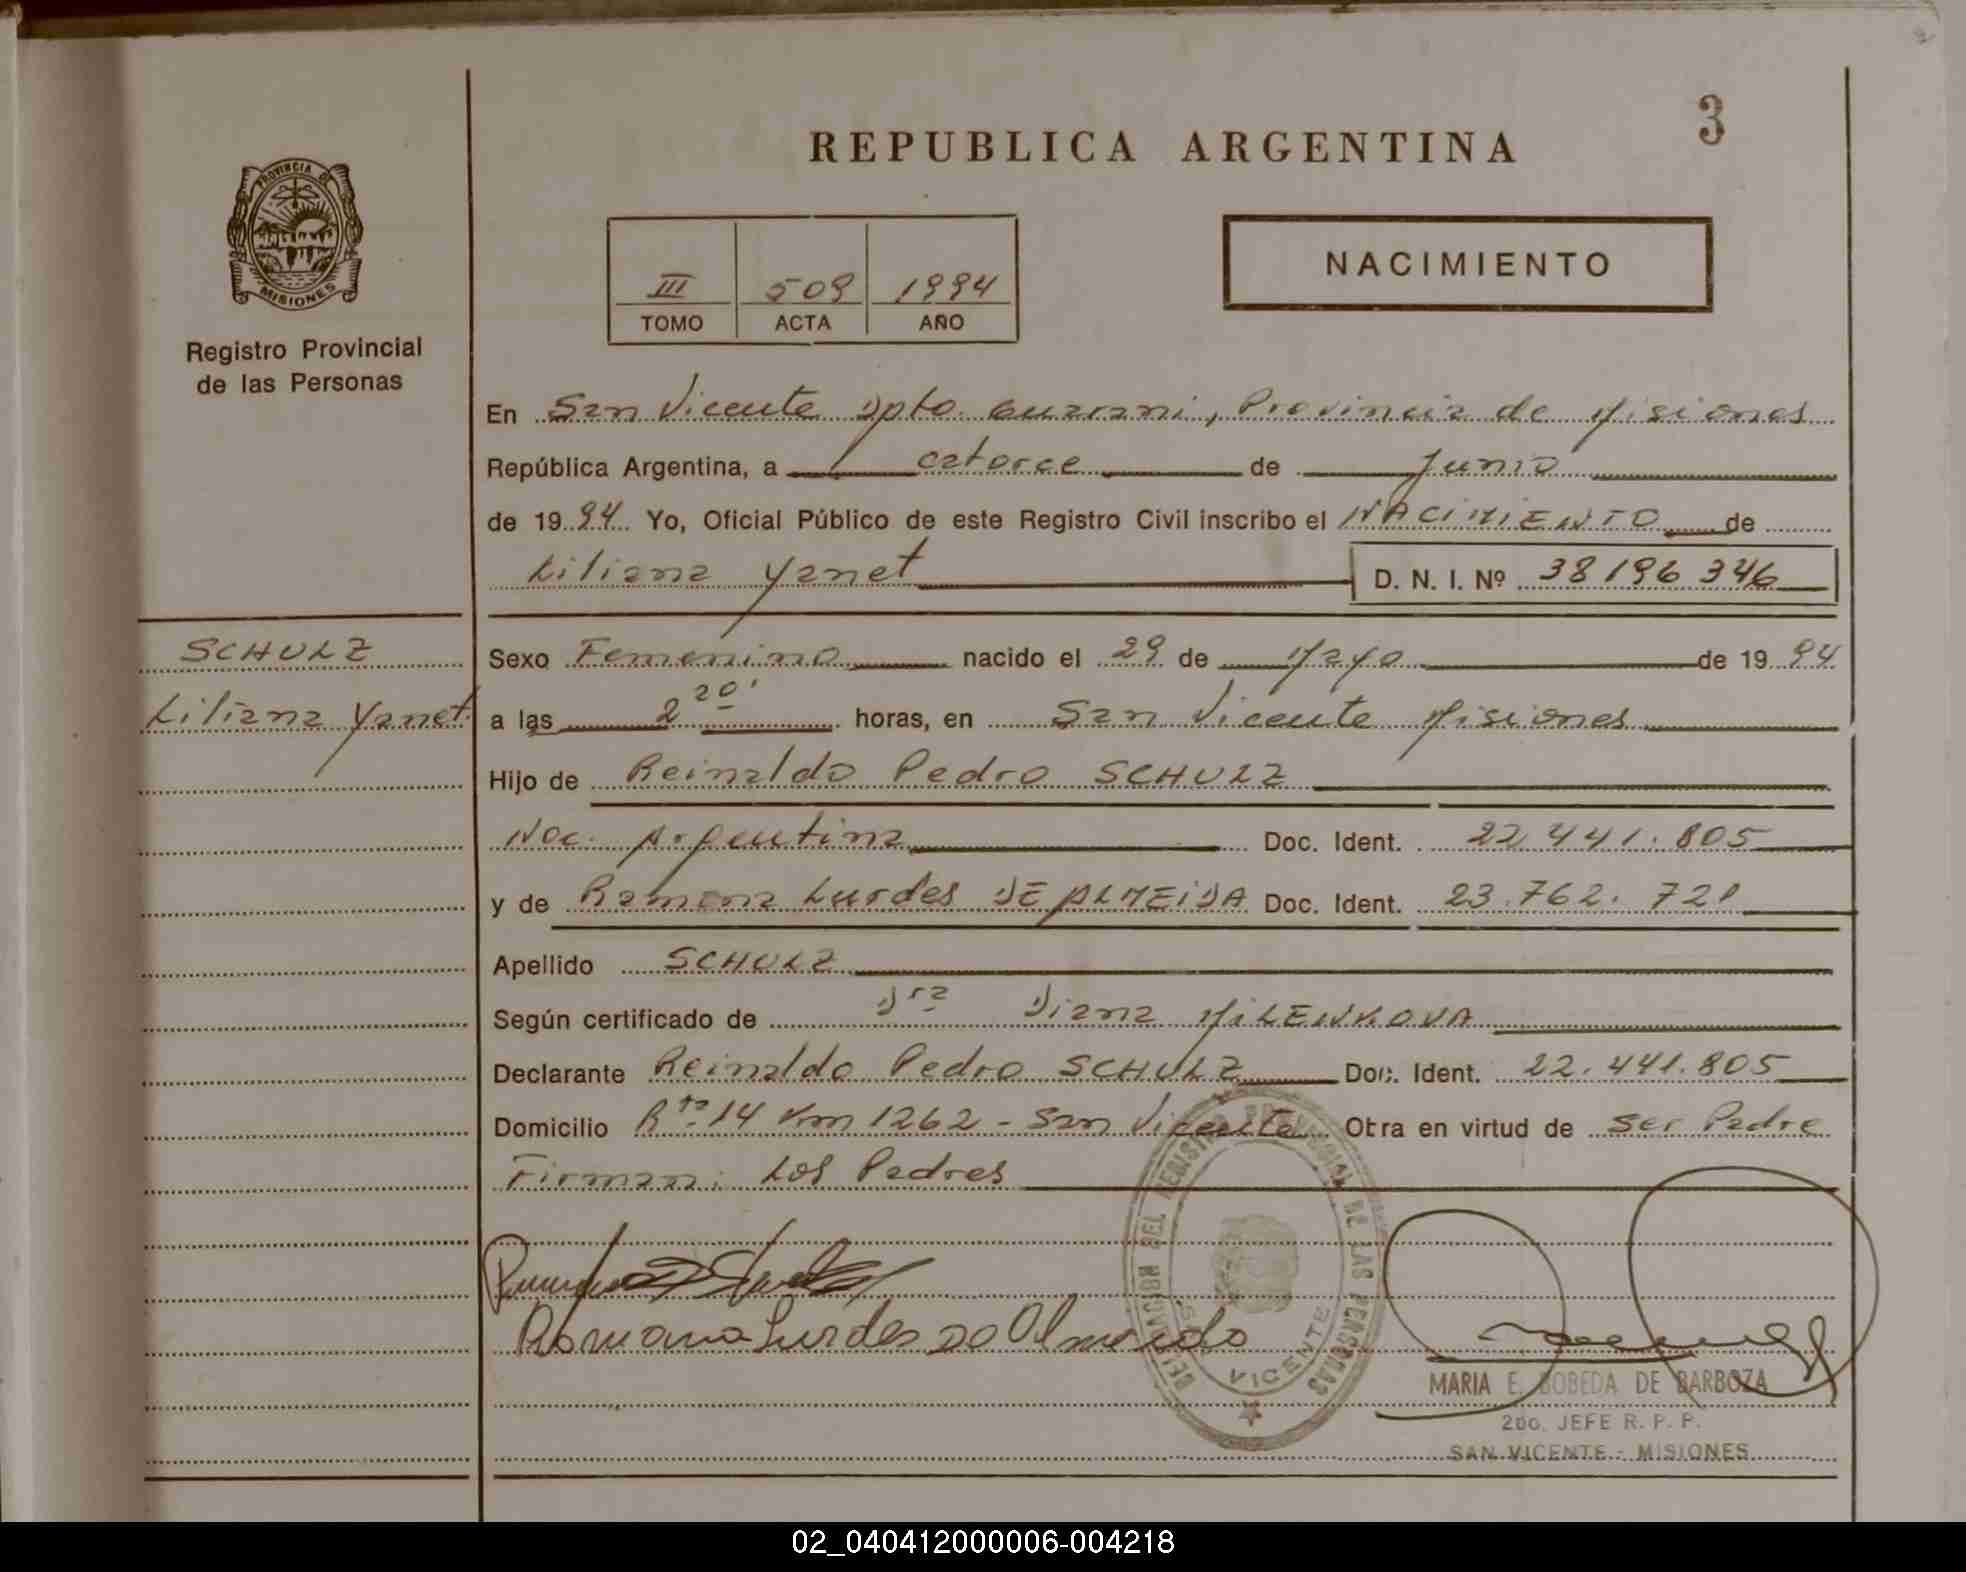 3
REPUBLICA ARGENTINA
PROVINCIA DE
MISIONES
Registro Provincial
de las Personas
III 509 1994
TOMO ACTA AÑO
NACIMIENTO
En San Vicente Dpto. Guarani, Provincia de Misiones
República Argentina, a catorce de Junio
de 1994 Yo, Oficial Público de este Registro Civil inscribo el NACIMIENTO de
Liliana Yanet D. N. I. Nº 38 196 346
SCHULZ
Liliana Yanet
Sexo Femenino nacido el 29 de Mayo de 1994
a las 2 20' horas, en San Vicente Misiones
Hijo de Reinaldo Pedro SCHULZ
Nac. Argentina Doc. Ident. 22.441.805
y de Ramona Lurdes DE ALMEIDA Doc. Ident. 23.762.721
Apellido SCHULZ
Según certificado de Dra Diana MILENKOVA
Declarante Reinaldo Pedro SCHULZ Doc. Ident. 22.441.805
Domicilio Rta. 14 Km 1262 - San Vicente Otra en virtud de Ser Padre
Firman: Los Padres
Ramona Lurdes De Almeida
DELEGACION DEL REGISTRO PROVINCIAL DE LAS PERSONAS
SAN VICENTE
MARIA E. BOBEDA DE BARBOZA
2do. JEFE R. P. P.
SAN VICENTE - MISIONES
02_040412000006-004218